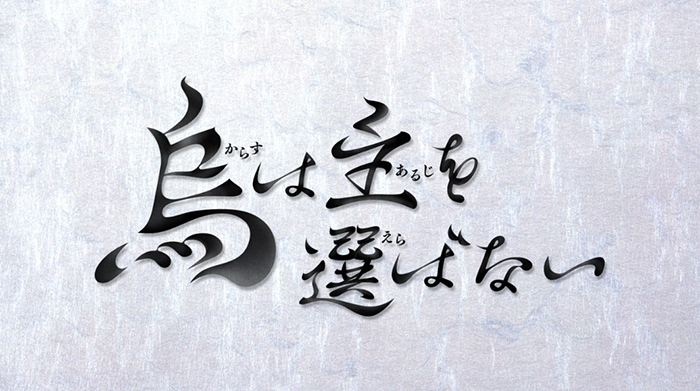 烏は主を
選ばない
からす
あるじ
えら